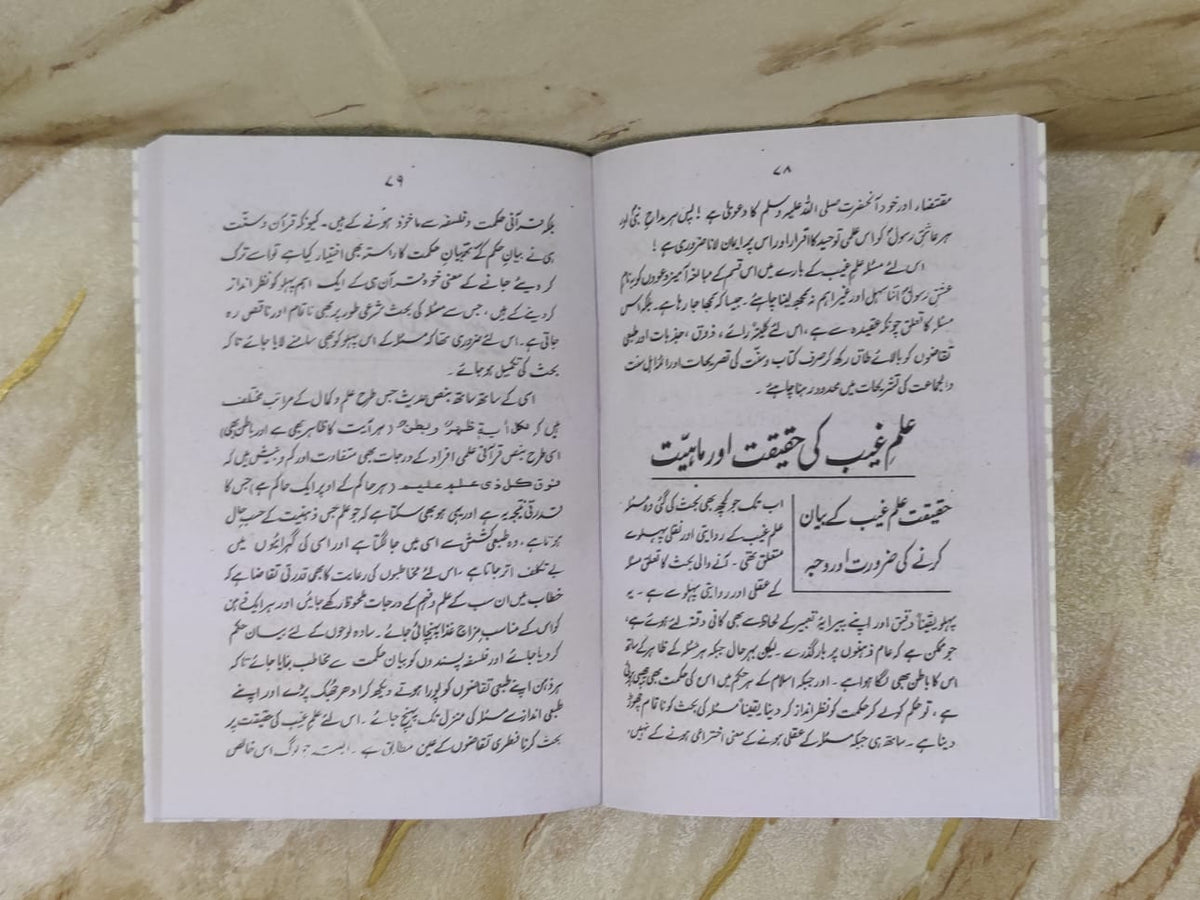 ۷۸
مقتضاء اور خود آنحضرت صلی اللہ علیہ وسلم کا دعویٰ ہے ! پس ہر مداحِ نبیؐ اور
ہر عاشقِ رسولؐ کو اس علمی توحید کا اقرار اور اس پر ایمان لانا ضروری ہے !
اس لئے مسئلہ علمِ غیب کے بارے میں اس قسم کے مبالغہ آمیز دعووں کو بنامِ
عشقِ رسولؐ اتنا سہل اور غیر اہم نہ سمجھ لینا چاہئے ۔ جیسا کہ سمجھا جا رہا ہے ۔ بلکہ اس
مسئلہ کا تعلق چونکہ عقیدہ سے ہے ، اس لئے رائے ، ذوق ، جذبات اور طبعی
تقاضوں کو بالائے طاق رکھ کر صرف کتاب و سنت کی تصریحات اور اہل سنت
والجماعت کی تشریحات میں محدود رہنا چاہئے ۔
علمِ غیب کی حقیقت اور ماہیّت
حقیقت علم غیب کے بیان
کرنے کی ضرورت اور وجہ
اب تک جو کچھ بھی بحث کی گئی وہ مسئلہ
علم غیب کے روایتی اور نقلی پہلو سے
متعلق تھی ۔ آنے والی بحث کا تعلق مسئلہ
کے عقلی اور روایتی پہلو سے ہے ۔ یہ
پہلو یقیناً دقیق اور اپنے پیرایۂ تعبیر کے لحاظ سے بھی کافی دقت لئے ہوئے ہے ،
جو ممکن ہے کہ عام ذہنوں پر بار گذرے ۔ لیکن بہرحال جبکہ ہر مسئلہ کے ظاہر کے ساتھ
اس کا باطن بھی لگا ہوا ہے ۔ اور جبکہ اسلام کے ہر حکم میں اس کی حکمت بھی چھپی ہوئی
ہے ، تو حکم کو لے کر حکمت کو نظر انداز کر دینا یقیناً مسئلہ کی بحث کو ناتمام چھوڑ
دینا ہے ۔ ساتھ ہی جبکہ مسئلہ کے عقلی ہونے کے معنی اختراعی ہونے کے نہیں،
۷۹
بلکہ قرآنی حکمت و فلسفہ سے ماخوذ ہونے کے ہیں ۔ کیونکہ قرآن و سنّت
ہی نے بیانِ حکم کے ساتھ بیانِ حکمت کا راستہ بھی اختیار کیا ہے تو اسے ترک
کر دیئے جانے کے معنی خود قرآن ہی کے ایک اہم پہلو کو نظر انداز
کر دینے کے ہیں ، جس سے مسئلہ کی بحث شرعی طور پر بھی ناتمام اور ناقص رہ
جاتی ہے ۔ اس لئے ضروری تھا کہ مسئلہ کے اس پہلو کو بھی سامنے لایا جائے تاکہ
بحث کی تکمیل ہو جائے ۔
اسی کے ساتھ ساتھ بنصِ حدیث جس طرح علم و کمال کے مراتب مختلف
ہیں کہ لکل اٰیۃ ظھرٌ و بطنٌ ( ہر آیت کا ظاہر بھی ہے اور باطن بھی )
اسی طرح بنص قرآنی علمی افراد کے درجات بھی متفاوت اور کم و بیش ہیں کہ
فوق کل ذی علم علیم ( ہر حاکم کے اوپر ایک حاکم ہے ) جس کا
قدرتی نتیجہ یہ ہے اور یہی ہو بھی سکتا ہے کہ جو علم جس ذہنیت کے حسبِ حال
ہوتا ہے ، وہ طبعی کشش سے اسی میں جا لگتا ہے اور اسی کی گہرائیوں میں
بے تکلف اتر جاتا ہے ۔ اس لئے مخاطبوں کی رعایت کا بھی قدرتی تقاضا ہے کہ
خطاب میں ان سب کے علم و فہم کے درجات ملحوظ رکھے جائیں اور ہر ایک ذہن
کو اس کے مناسب مزاج غذا پہنچائی جائے ۔ سادہ لوحوں کے لئے بیان حکم
کر دیا جائے اور فلسفہ پسندوں کو بیان حکمت سے مخاطب بنایا جائے تاکہ
ہر ذہن اپنے طبعی تقاضوں کو پورا ہوتے دیکھ کر ادھر جھک پڑے اور اپنے
طبعی انداز سے مسئلہ کی منزل تک پہنچ جائے ۔ اس لئے علم غیب کی حقیقت پر
بحث کرنا فطری تقاضوں کے عین مطابق ہے ۔ البتہ جو لوگ اس خالص